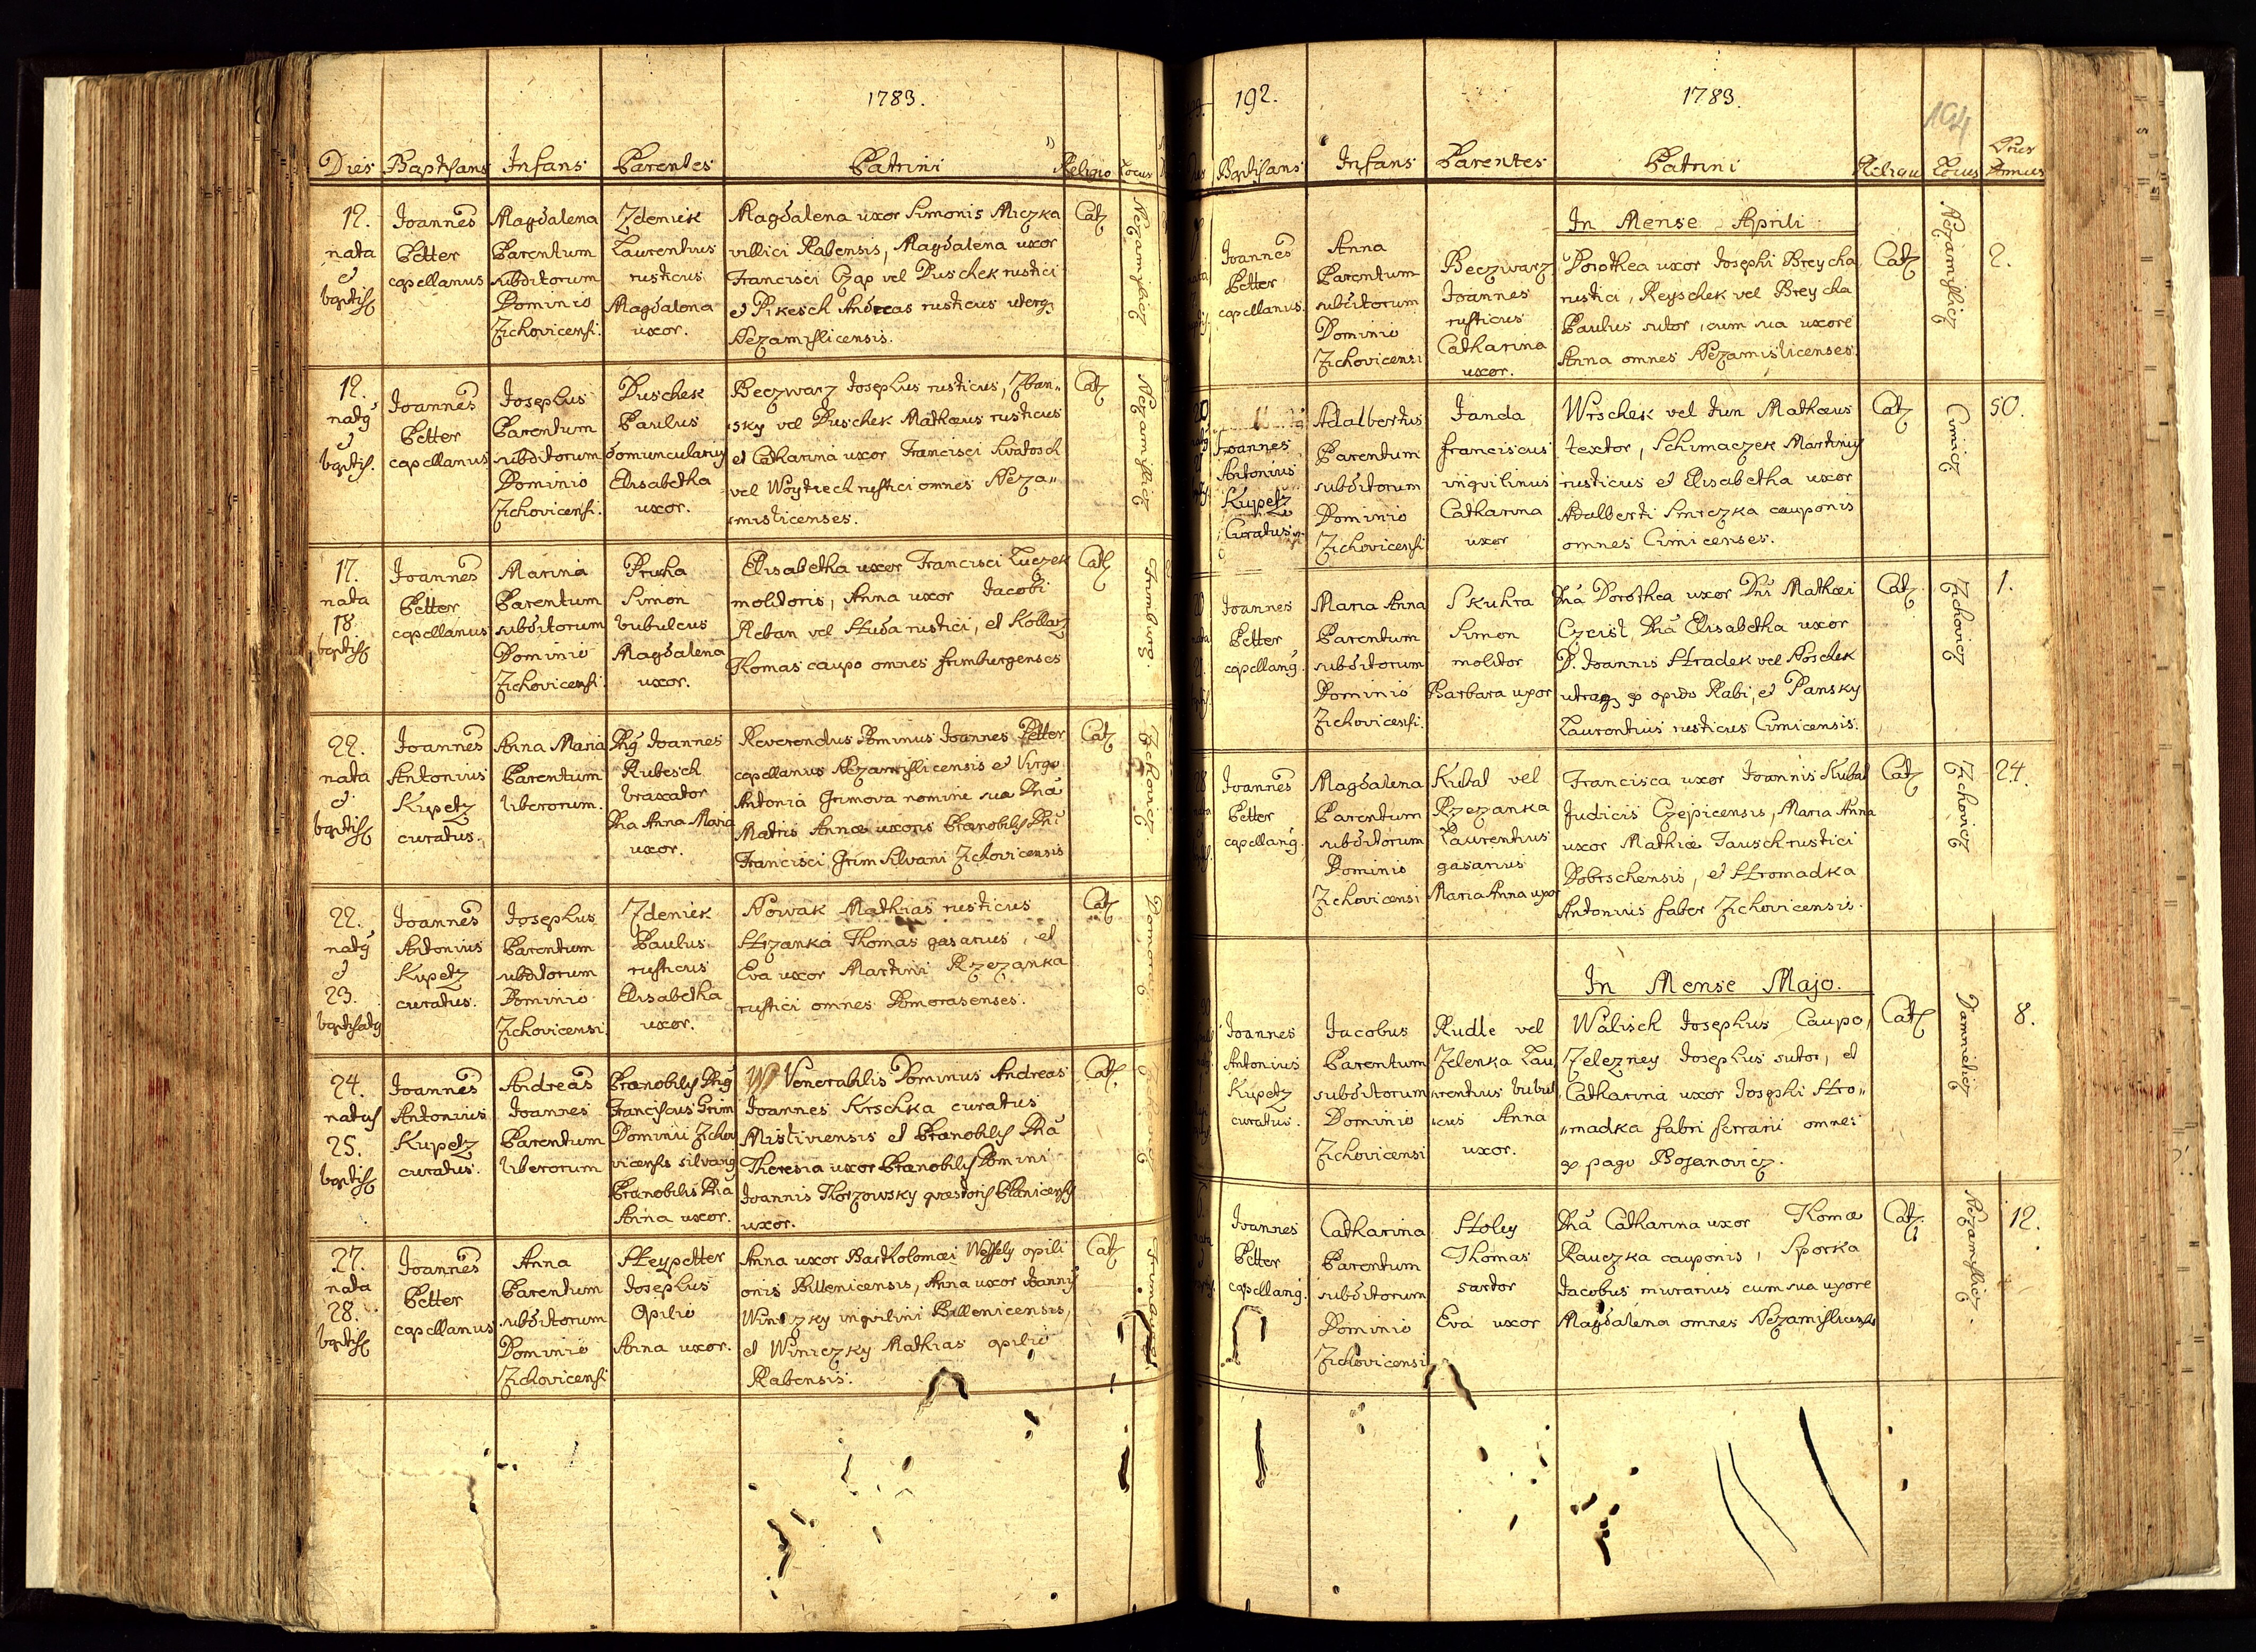 1783.
Dies Baptisans Infans Parentes Patrini Religio Locus
12.
nata
et
baptis.
Joannes
Petter
capellanus
Magdalena
Parentum
subditorum
Dominio
Zichovicensi.
Zdeniek
Laurentius
rusticus
Magdalena
uxor.
Magdalena uxor Simonis Miczka
villici Rabensis, Magdalena uxor
Francisci Czap vel Duschek rustici
et Pikesch Andreas rusticus uterq
Nezamislicensis.
Cath
Nezamislicz
12.
natq
et
baptis.
Joannes
Petter
capellanus
Josephus
Parentum
subditorum
Dominio
Zichovicensi.
Duschek
Paulus
domuncularius
Elisabetha
uxor.
Beczwarz Josephus rusticus, Zban„
sky vel Duschek Mathæus rusticus
et Catharina uxor Francisci Kwatosch
vel Woytiech rustici omnes Neza„
mislicenses.
Cath
Nezamislicz
17.
nata
18.
baptis
Joannes
Petter
capellanus
Marina
Parentum
subditorum
Dominio
Zichovicensi.
Prucha
Simon
bubulcus
Magdalena
uxor.
Elisabetha uxor Francisci Luczek
molitoris, Anna uxor Jacobi
Reban vel Studa rustici, et Kollarz
Thomas caupo omnes frimburgenses
Cath
Frimburg.
22.
nata
et
baptis
Joannes
Antonius
Kupetz
curatus.
Anna Maria
Parentum
liberorum.
Dnq Joannes
Rubesch
braxator
Dna Anna Maria
uxor.
Reverendus Dominus Joannes Petter
capellanus Nezamislicensis et Virgo
Antonia Grimova nomine sua Dnā
Matris Annæ uxoris Prænobilis Dni
Francisci Grim Silvani Zichovicensis
Cath
Zichovicz
22.
natq
et
23.
baptisatq
Joannes
Antonius
Kupetz
curatus.
Josephus
Parentum
subditorum
Dominio
Zichovicensi.
Zdeniek
Paulus
rusticus
Elisabetha
uxor.
Nowak Mathias rusticus
Strzanka Thomas gasarius, et
Eva uxor Martini Rzezanka
rustici omnes Domorasenses.
Cath
Domoraz
24.
natus
25.
baptis
Joannes
Antonius
Kupetz
curatus.
Andreas
Joannes
Parentum
liberorum
Prænobilis Dnq
Franciscus Grim
Dominii Zicho
vicensis silvanq
Prænobilis Dna
Anna uxor.
Venerabilis Dominus Andreas
Joannes Krschka curatus
Mistiviensis et Prænobilis Dnā
Theresia uxor Prænobilis Domini
Joannis Thorzowsky quæstoris Planicensis
uxor.
Cath.
Zichovicz
27.
nata
28.
baptis
Joannes
Petter
capellanus
Anna
Parentum
subditorum
Dominio
Zichovicensi
Steypetter
Josephus
Opilio
Anna uxor.
Anna uxor Bartholomæi Wessely opili
onis Billenicensis, Anna uxor Joannis
Winiczky inquilini Billenicensis,
et Winiczky Mathias opilio
Rabensis.
Cath
Frimburg.
192.
1783.
194
Baptisans Infans Parentes Patrini Religio Locus Nrus Domus
In Mense Aprili
Joannes
Petter
capellanus.
Anna
Parentum
subditorum
Dominio
Zichovicensi
Beczwarz
Joannes
rusticus
Catharina
uxor.
Dorothea uxor Josephi Breycha
rustici, Reyschek vel Breycha
Paulus sutor, cum sua uxore
Anna omnes Nezamislicenses.
Cath
Nezamislicz
2.
20.
Joannes
Antonius
Kupetz
Curatus
Adalbertus
Parentum
subditorum
Dominio
Zichovicensi
Janda
franciscus
inquilinus
Catharina
uxor
Wrschek vel tun Mathæus
textor, Schimaczek Martinus
rusticus et Elisabetha uxor
Adalberti Smiczka cauponis
omnes Cimicenses.
Cath
Cimicz
50.
Joannes
Petter
capellanq.
Maria Anna
Parentum
subditorum
Dominio
Zichovicensi.
Skuhra
Simon
molitor
Barbara uxor
Dnā Dorothea uxor Dni Mathæi
Czeist, Dnā Elisabetha uxor
D. Joannis Stradek vel Noschek
utraq ex opido Rabi, et Pansky
Laurentius rusticus Cimicensis.
Cath
Zichovicz
1.
28
Joannes
Petter
capellanq.
Magdalena
Parentum
subditorum
Dominio
Zichovicensi
Kubal vel
Rzezanka
Laurentius
gasarius
Maria Anna uxor
Francisca uxor Joannis Kubal
Judicis Czepicensis, Maria Anna
uxor Mathiæ Jausch rustici
Dobrschensis, et Stromadka
Antonius faber Zichovicensis.
Cath
Zichovicz
24.
In Mense Majo.
Joannes
Antonius
Kupetz
curatus.
Jacobus
Parentum
subditorum
Dominio
Zichovicensi
Rudle vel
Zelenka Lau
rentius bubul
cus Anna
uxor.
Walisch Josephus Caupo,
Zelezney Josephus sutor, et
Catharina uxor Josephi Stro„
„madka fabri ferrarii omnes
ex pago Bojanovicz.
Cath
Damieticz
8.
Joannes
Petter
capellanq.
Catharina
Parentum
subditorum
Dominio
Zichovicensi
Stoley
Thomas
sartor
Eva uxor
Dnā Catharina uxor Thomæ
Rauczka cauponis, Sporka
Jacobus murarius cum sua uxore
Magdalena omnes Nezamislicenses
Cath.
Nezamislicz.
12.